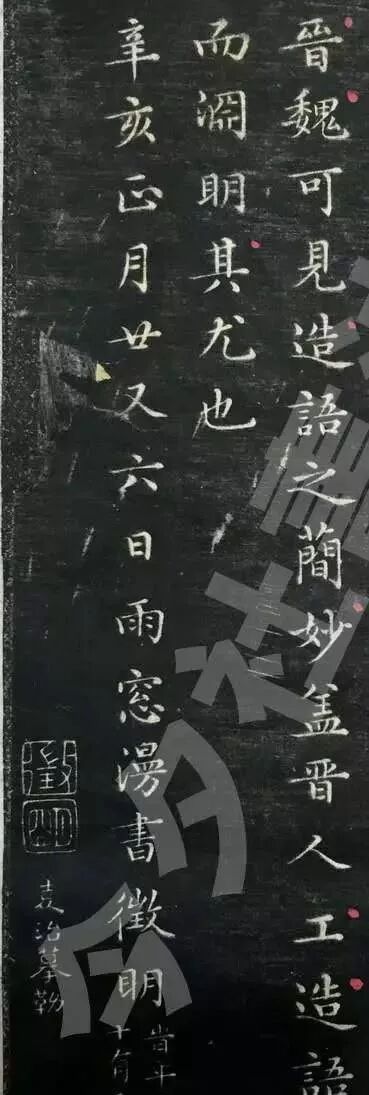 晉魏可見造語之簡妙盖晋人工造語
而淵明其尤也
辛亥正月廿又六日雨窓漫書徵明
時年
十有
徵
明
袁治摹勒